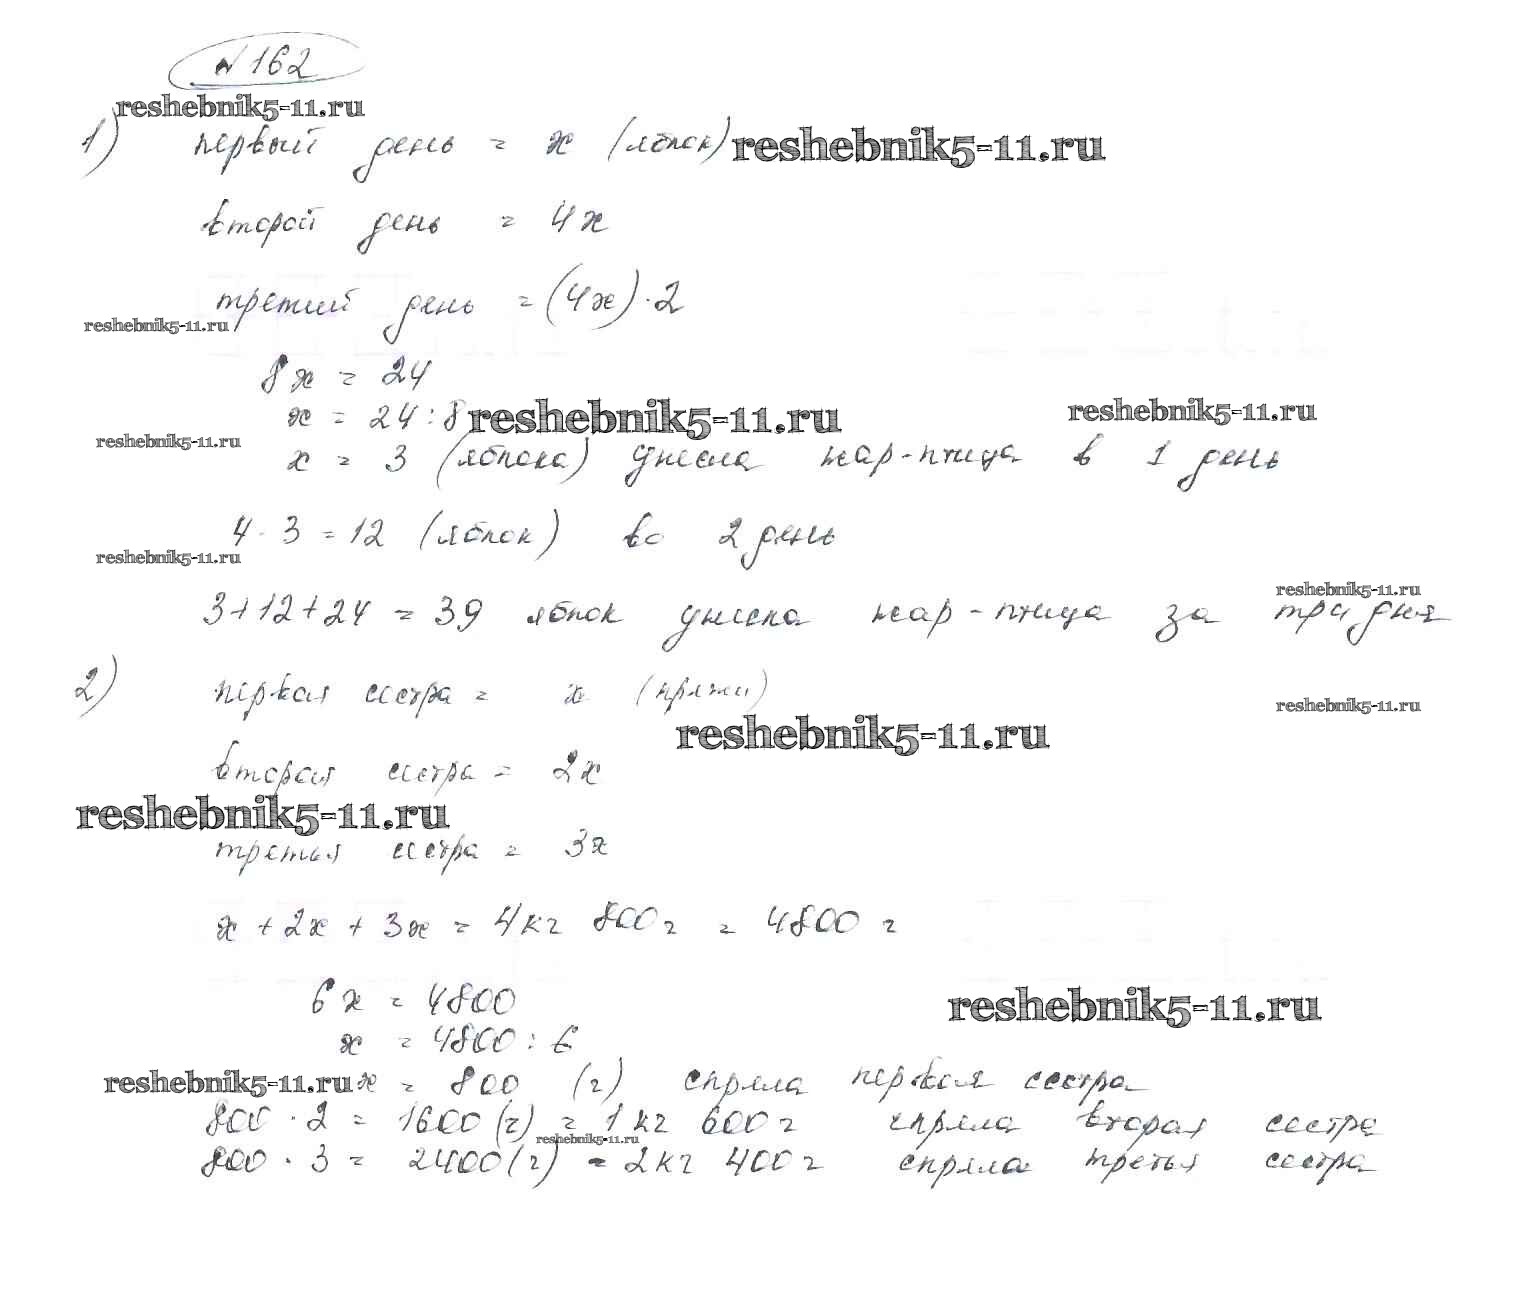 № 162
reshebnik5-11.ru
1) первый день = x (яблок) reshebnik5-11.ru
второй день = 4x
третий день = (4x) · 2
reshebnik5-11.ru
8x = 24
x = 24 : 8 reshebnik5-11.ru reshebnik5-11.ru
reshebnik5-11.ru
x = 3 (яблока) унесла жар-птица в 1 день
4 · 3 = 12 (яблок) во 2 день
reshebnik5-11.ru
reshebnik5-11.ru
3+12+24 = 39 яблок унесла жар-птица за три дня
2) первая сестра = x (пряжи)
reshebnik5-11.ru
reshebnik5-11.ru
вторая сестра = 2x
reshebnik5-11.ru
третья сестра = 3x
x + 2x + 3x = 4 кг 800 г = 4800 г
6x = 4800
reshebnik5-11.ru
x = 4800 : 6
reshebnik5-11.ru x = 800 (г) спряла первая сестра
800 · 2 = 1600 (г) = 1 кг 600 г спряла вторая сестра
reshebnik5-11.ru
800 · 3 = 2400 (г) = 2 кг 400 г спряла третья сестра